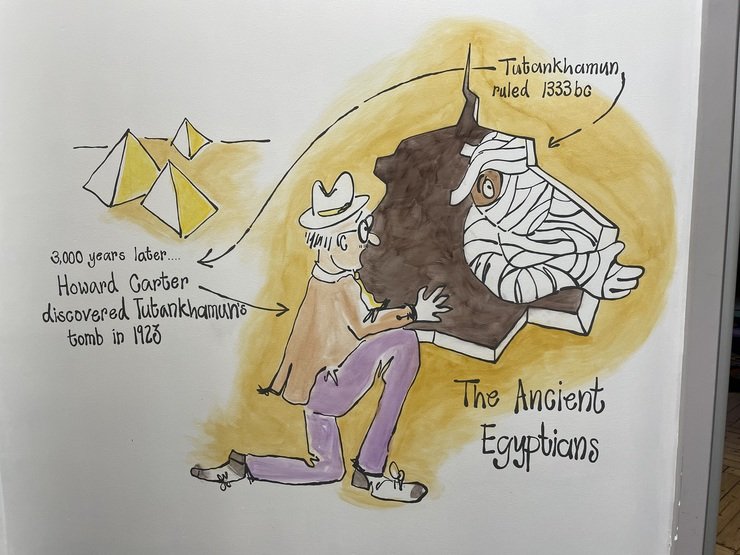 Tutankhamun
ruled 1333bc
3,000 years later....
Howard Carter
discovered Tutankhamun's
tomb in 1923
The Ancient
Egyptians